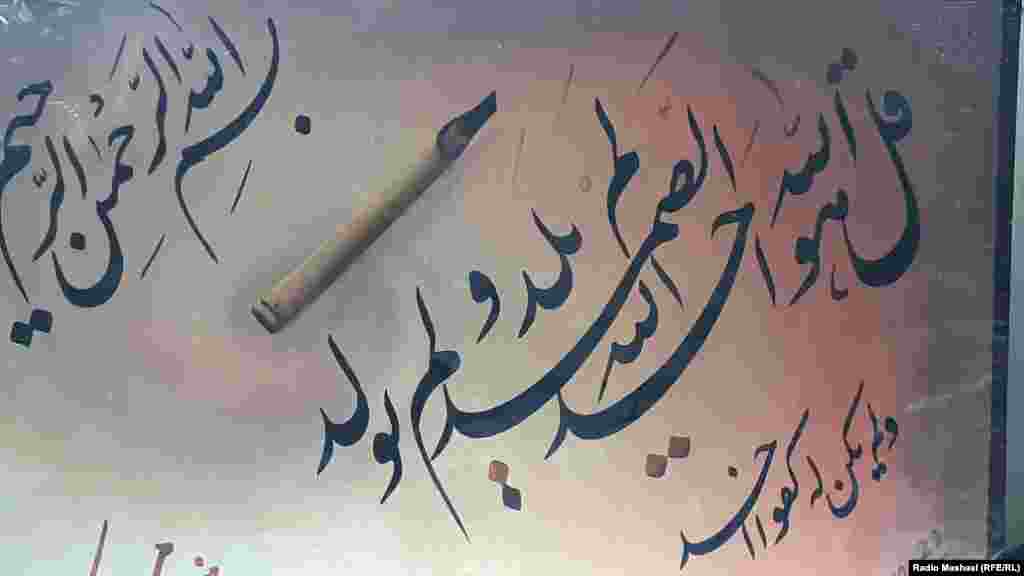 بسم الله الرَّحمٰن الرَّحِيم
قل هو اللَّه احد
الله الصَّمد
لم يلد و
لم يولد
ولم يكن له كفوا احد
Radio Mashaal (RFE/RL)